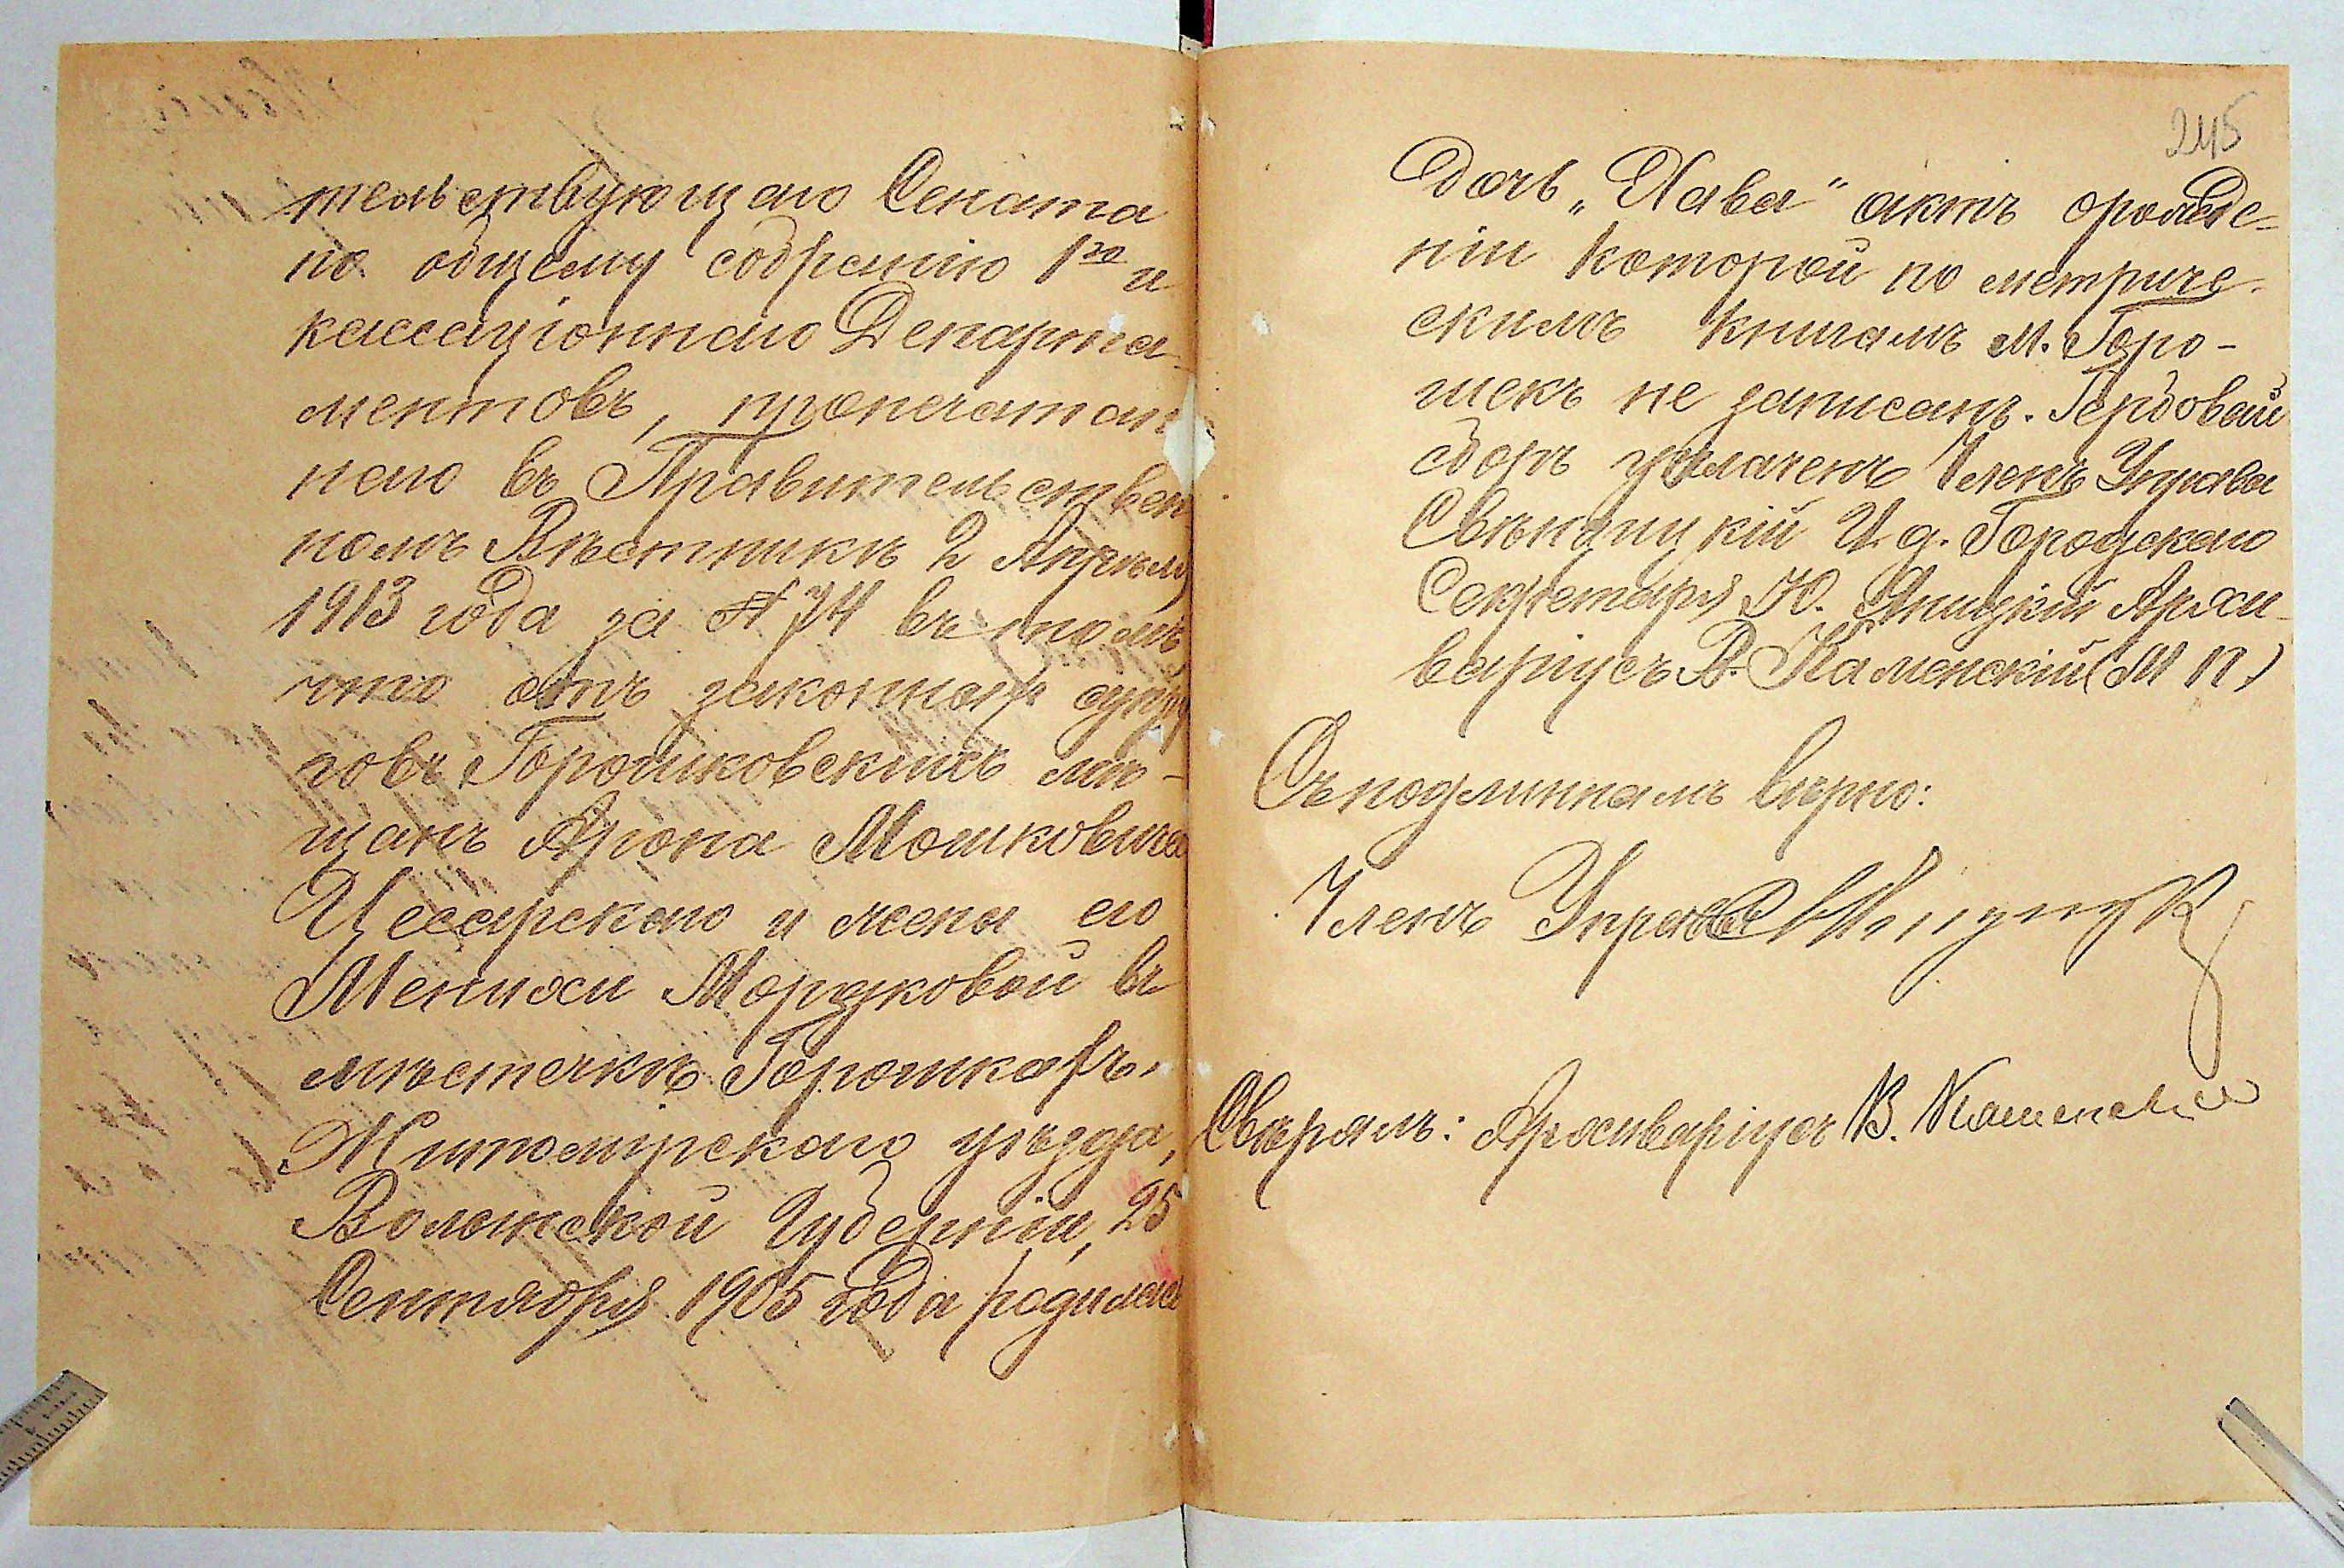 тельствующаго Сената
по общему собранію 1го и
кассаціоннаго Департа-
ментовъ, пропечатан-
наго въ Правительствен
номъ Вѣстникѣ 2 Апрѣля
1913 года за № 74 въ томъ
что отъ законныхъ супру
говъ Горошковскихъ мѣ-
щанъ Арона Мошковича
Цесарскаго и жены его
Менихи Мордковой въ
мѣстечкѣ Горошкахъ,
Житомірскаго уѣзда,
Волынской Губерніи, 25
Сентября 1905 года родилась
245
дочь „Хава" актъ о рожде-
ніи которой по метриче-
скимъ книгамъ м. Горо-
шекъ не записанъ. Гербовый
сборъ уплаченъ Членъ Управы
И д. Городского
Секретаря Ю. Яницкій Архи-
варіусъ В. Каменскій (М П.)
Съ подлиннымъ вѣрно:
Членъ Управы
Свѣрялъ: Архиваріусъ В. Каменскій